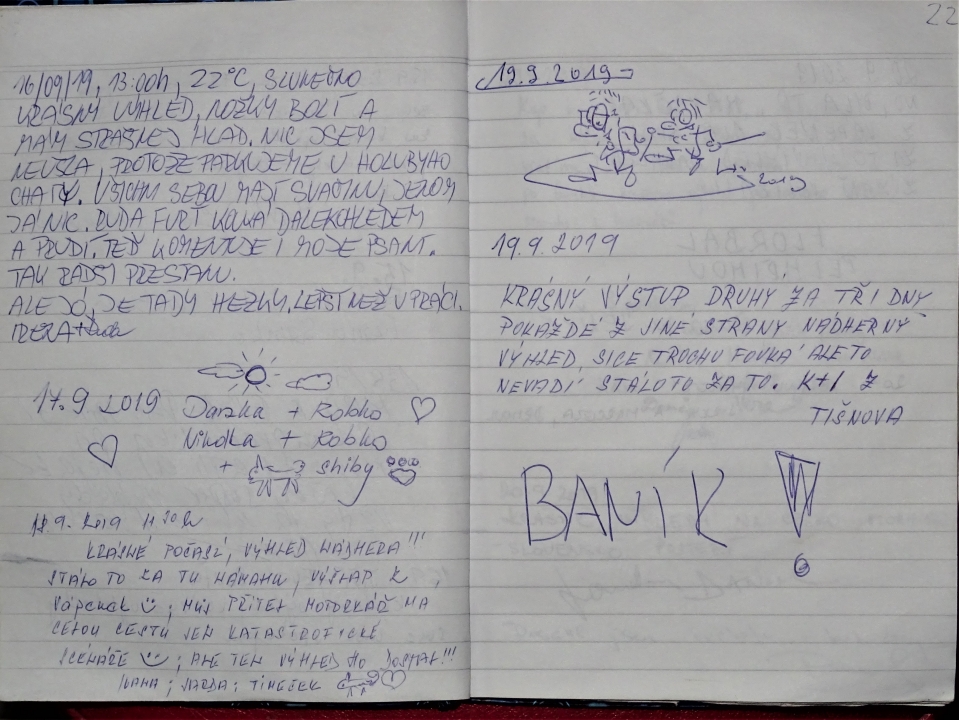 16/09/19, 13:00h, 22°C, SLUNEČNO
KRÁSNÝ VÝHLED, NOŽKY BOLÍ A
MÁM STRAŠNEJ HLAD. NIC JSEM
NEVZLA, PROTOŽE PARKUJEME U HOLUBYHO
CHATY. VŠICHNI SEBOU MAJÍ SVAČINU, JENOM
JÁ NIC. RUDA FURT KOUKÁ DALEKOHLEDEM
A PRUDÍ. TEĎ KOMENTUJE I MOJE PSANÍ.
TAK RADŠI PŘESTANU.
ALE JÓ, JE TADY HEZKY. LEPŠÍ NEŽ V PRÁCI.
17.9 2019 Danka + Robko
Nikolka + Robko
+ shiby
18.9. 2019 11 30 h
KRÁSNÉ POČASÍ, VÝHLED NÁDHERA!!!
STÁLO TO ZA TU NÁMAHU, VÝŠLAP Z
Vápenek; MŮJ PŘÍTEL MOTORKÁŘ MÁ
CELOU CESTU JEN KATASTROFICKÉ
SCÉNÁŘE; ALE TEN VÝHLED HO DOSTAL!!!
IVANA; JARDA; TIMEČEK
22
19.9.2019
2019
19.9.2019
KRÁSNÝ VÝSTUP DRUHÝ ZA TŘI DNY
POKAŽDÉ Z JINÉ STRANY NÁDHERNÝ
VÝHLED, SICE TROCHU FOUKÁ ALE TO
NEVADÍ STÁLO TO ZA TO. K+I Z
TIŠNOVA
BANÍK !